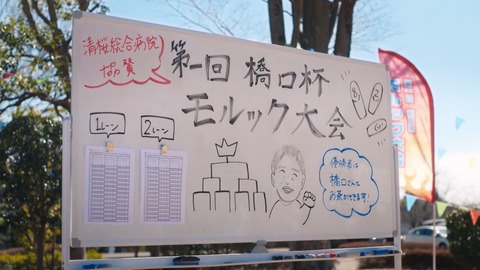 清桜総合病院
協賛
第一回 橋口杯
モルック大会
1レーン
2レーン
優勝者は
橋口さんと
お茶ができます!